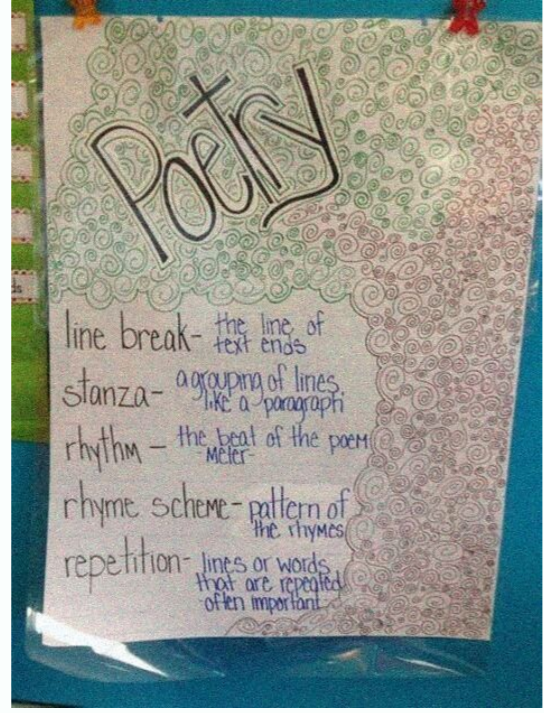 Poetry
line break- the line of
text ends
stanza- a grouping of lines,
like a paragraph
rhythm - the beat of the poem
-meter-
rhyme scheme- pattern of
the rhymes
repetition- lines or words
that are repeated
often important